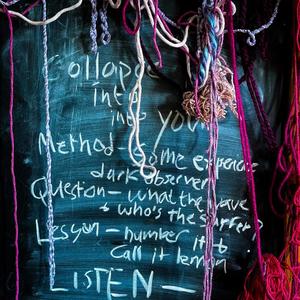 Collapse
into
into your
Method – some experience
dark observer
Question – what the wave
& who's the surfer?
Lesson – number it 6
call it lemon
LISTEN –